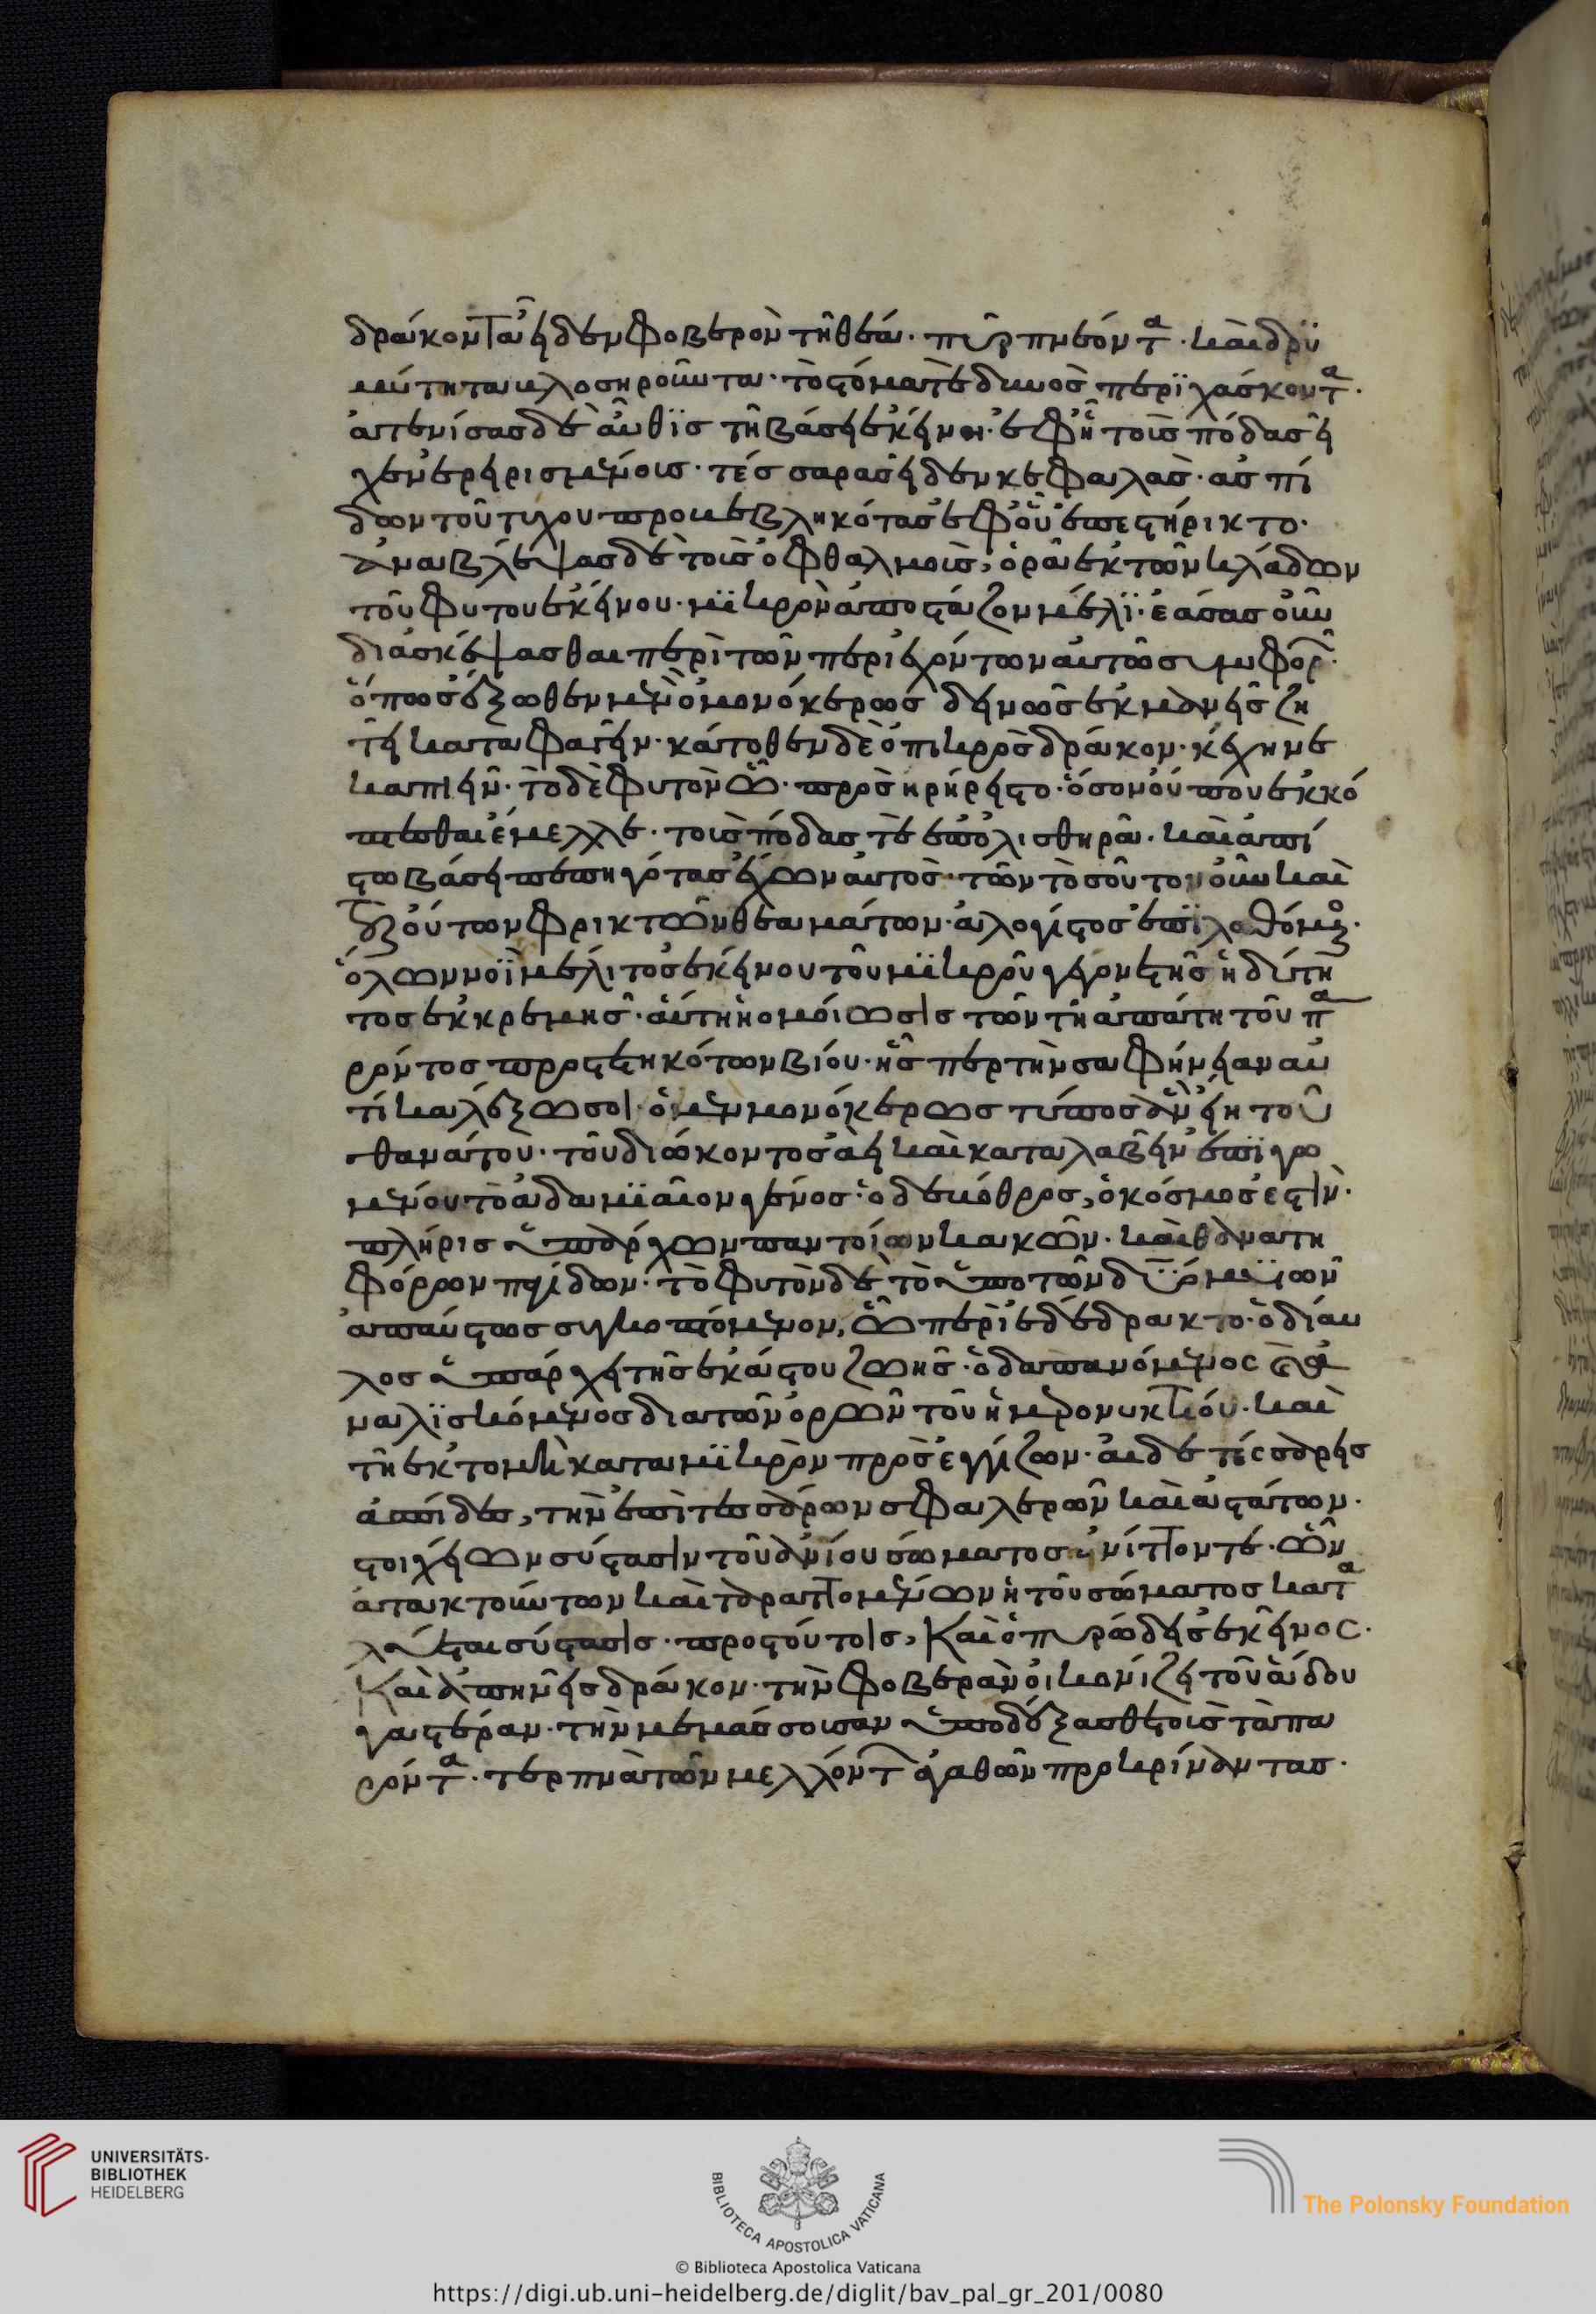 δράκοντα εἶδεν φοβερὸν τῆ θέα· πῦρ πνέοντα· καὶ δρϋ
μύτητα βλοσηροῦντα· τὸ στόμα τὲ δινὸς περϊχάσκοντα·
ἀτενίσας δὲ αὖθϊς τῆ βάσει ἐκείνη· ἐφ ἧ τοὺς πόδας εἶ
χεν ἐρηρισμένους· τέσσαρας εἶδεν κεφαλὰς· ἀσπί
δων τοῦ τίχου προβεβληκότας ἐφ οὗ ἐπεστήρικτο·
ἀναβλέψας δὲ τοὺς ὀφθαλμοὺς, ὁρᾶ ἐκ τῶν κλάδων
τοῦ φυτοῦ ἐκείνου· μϊκρὸν ἀποστάζον μέλϊ· ἐάσας οὖν
διασκέψασθαι περὶ τῶν περιεχόντων αὐτῶ συμφορῶν·
ὅπως ἔξωθεν μὲν ὁ μονόκερως δεινῶς ἐκμανεὶς ζη
τεῖ καταφαγεῖν· κάτοθεν δὲ ὁ πικρὸς δράκον· κέχηνε
καταπιεῖν· τὸ δὲ φυτὸν ὧ· προσηρήρειστο· ὅσον οὔπου ἐκκό
πτεσθαι ἔμελλε· τοὺς πόδας τὲ ἐπ ὀλισθηρᾶ· καὶ ἀπί
στω βάσει πεπηγότας ἔχων αὐτὸς· τῶν τοσοῦτον οὖν καὶ
τοιούτων φρικτῶν θεαμάτων· ἀλογίστος ἐπϊλαθόμενος·
ὅλω νοῒ μέλιτος ἐκείνου τοῦ μϊκροῦ γέγονε τῆς ἡδύτη
τος ἐκκρεμὴς· αὕτη ἡ ὁμοίωσις τῶν τῆ ἀπάτη τοῦ πα
ρόντος προστετηκότων βίου· ἧσπερ τὴν σαφήνειαν αὐ
τίκα λέξω σοι· ὁ μὲν μονόκερως τύπος ἂν εἴη τοῦ
θανάτου· τοῦ διώκοντος ἀεὶ καὶ καταλαβεῖν ἐπϊγο
μένου τὸ ἀδαμϊαῖον γένος· ὁ δὲ βόθρος, ὁ κόσμος ἐστὶν·
πλήρις ὑπάρχων παντοίων κακῶν· καὶ θανατη
φόρων παγίδων· τὸ φυτὸν δὲ τὸ ὑπὸ τῶν δύο μϋῶν
ἀπαύστως συγκοπτόμενον, ὧ περιεδέδρακτο· ὁ δίαυ
λος ὑπάρχει τῆς ἑκάστου ζωῆς· ὁ δαπανόμενος καὶ ἀ
ναλϊσκόμενος διὰ τῶν ὁρῶν τοῦ ἡμερονυκτίου· καὶ
τῆ ἐκτομῆ κατὰ μϊκρὸν προσεγγίζων· αἱ δὲ τέσσαρεις
ἀσπίδες, τὴν ἐπὶ τεσσάρων σφαλερῶν καὶ ἀστάτων·
στοιχείων σύστασιν τοῦ ἀνίου σώματος αἰνίττοντε· ὧν
ἀτακτούντων καὶ ταραττομένων ἡ τοῦ σώματος κατα
λύεται σύστασις· πρὸς τούτοις, καὶ ὁ πυρώδης ἐκεῖνος·
καὶ ἀπηνεὶς δράκον· τὴν φοβερὰν εἰκονίζει τοῦ ἅδου
γαστέραν· τὴν μεμάσσουσαν ὑποδέξασθε τοὺς τὰ πα
ρόντα· τερπνὰ τῶν μελλόντων ἀγαθῶν προκρίναντας·
UNIVERSITÄTS-
BIBLIOTHEK
HEIDELBERG
BIBLIOTECA APOSTOLICA VATICANA
The Polonsky Foundation
© Biblioteca Apostolica Vaticana
https://digi.ub.uni-heidelberg.de/diglit/bav_pal_gr_201/0080